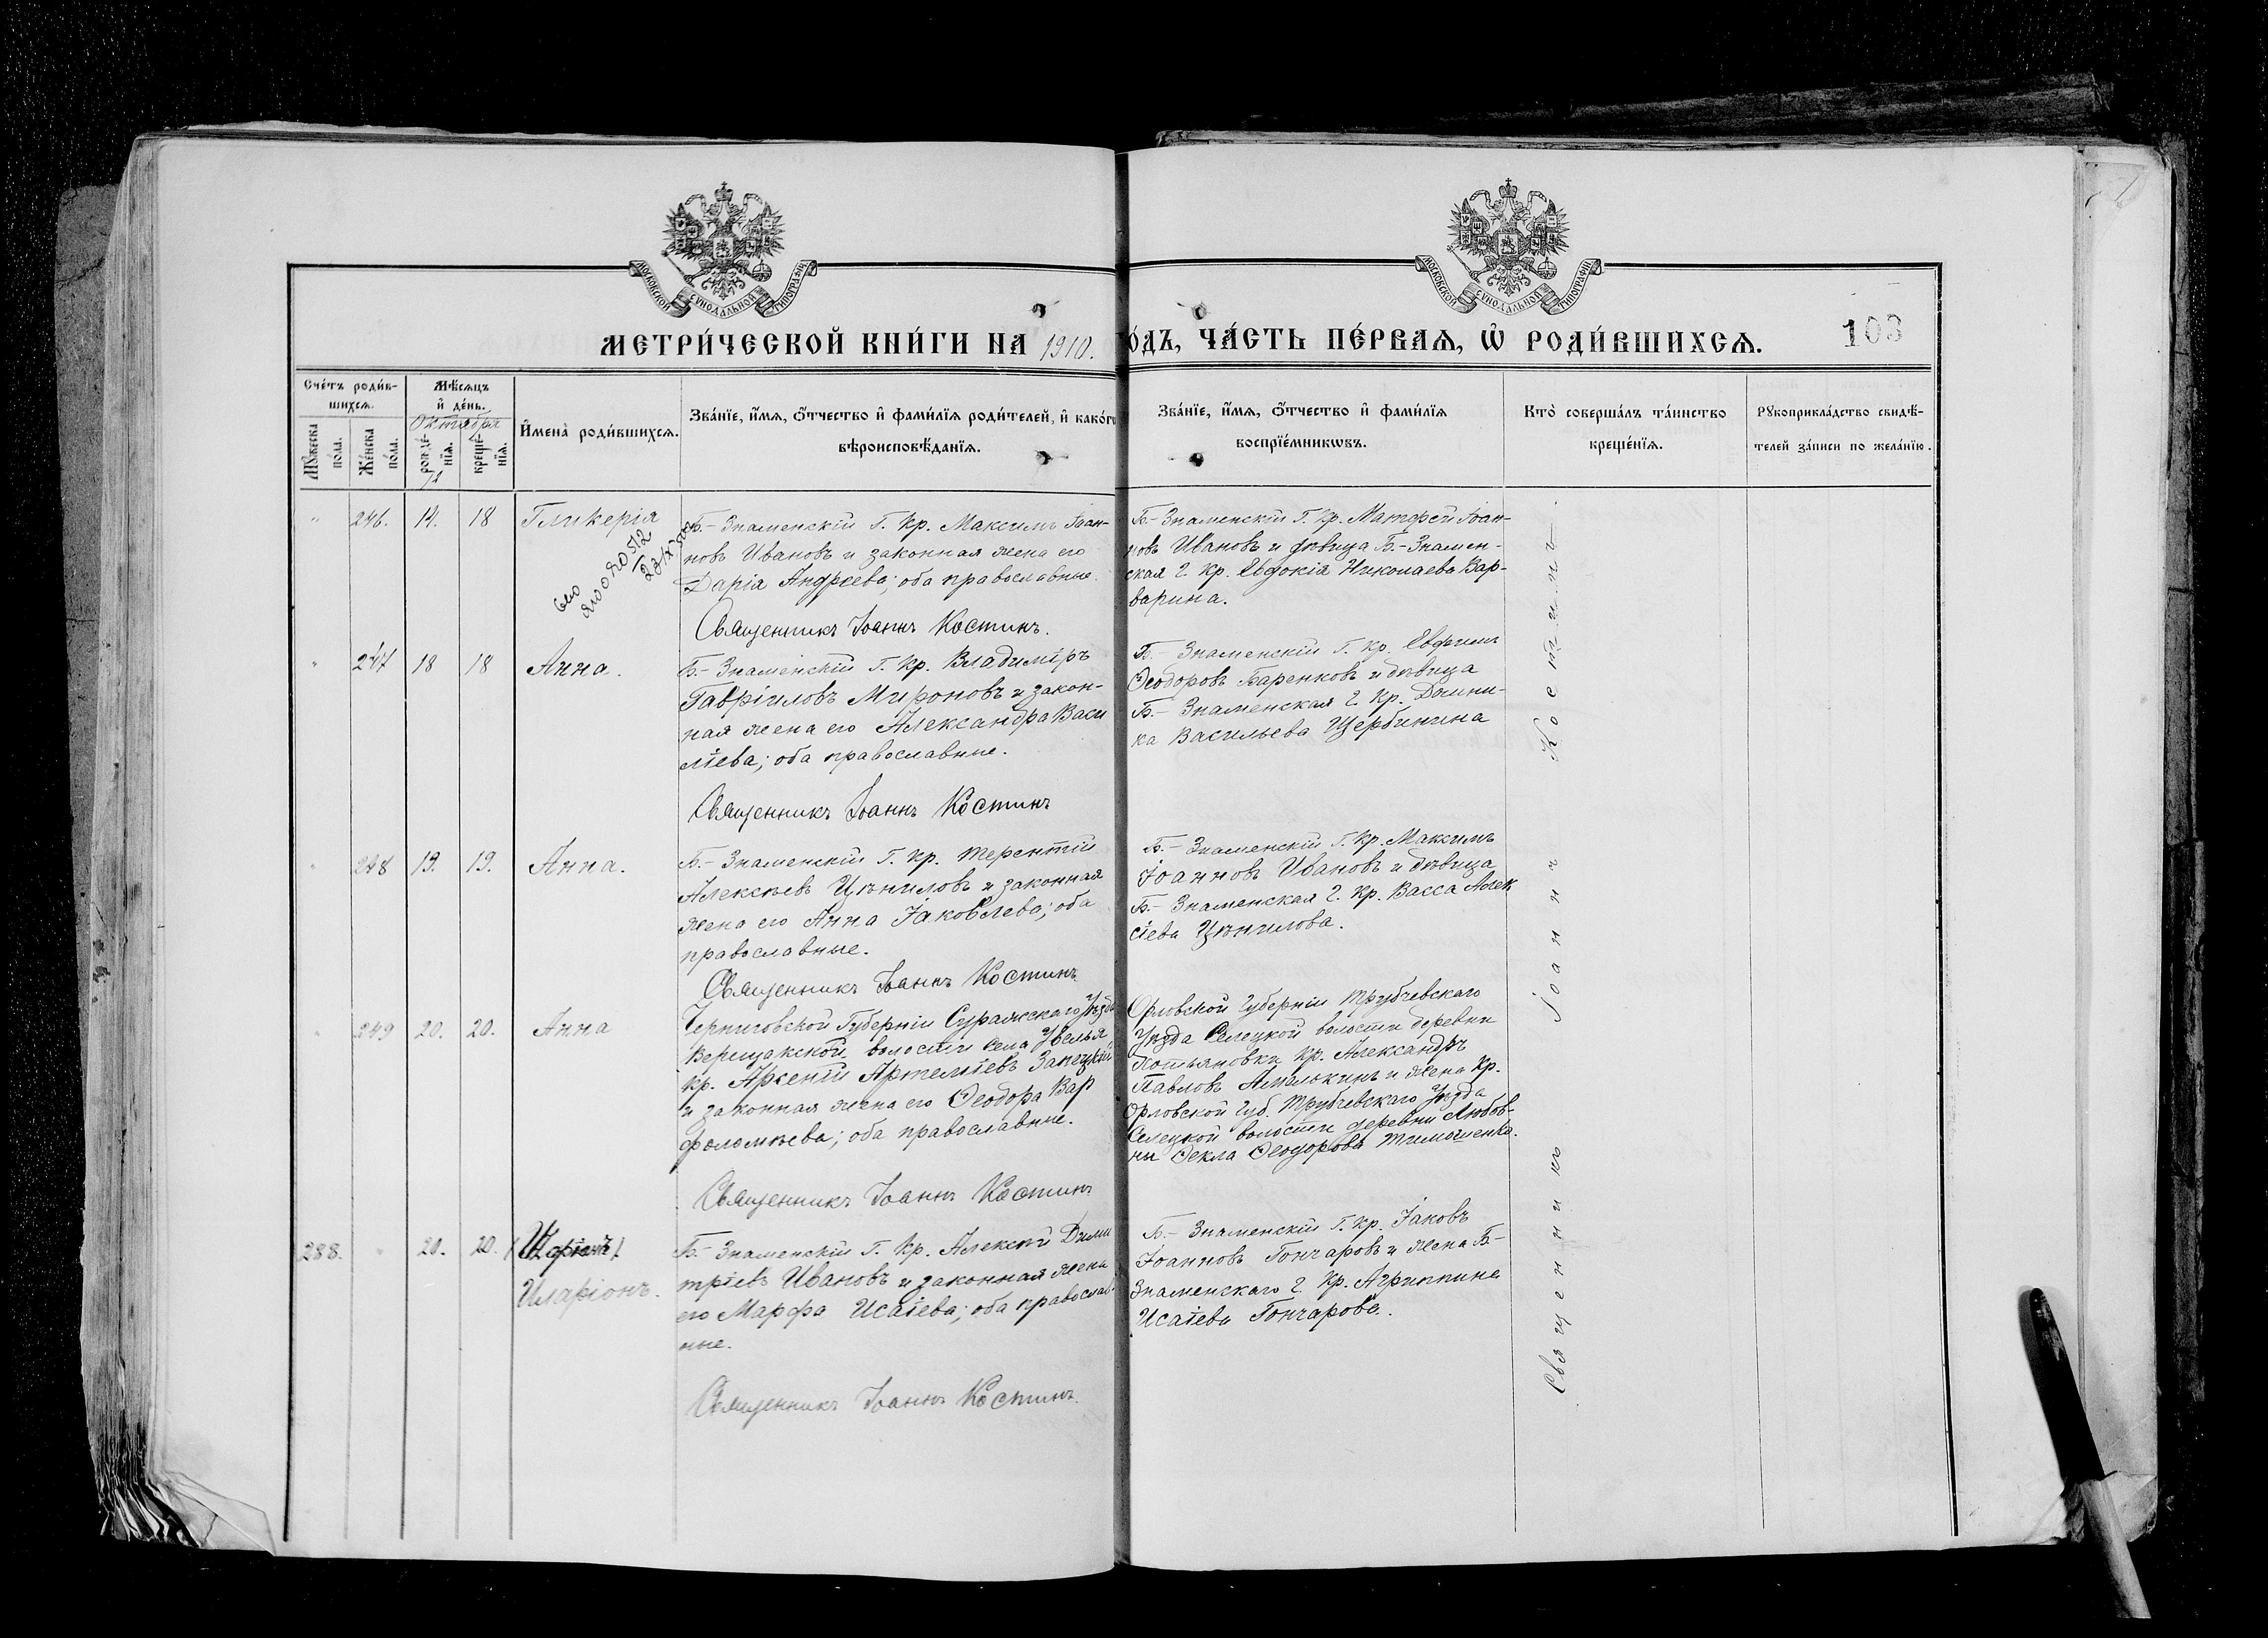 МОСКОВСКОЙ СУНОДАЛЬНОЙ ТИПОГРАФІИ
МОСКОВСКОЙ СУНОДАЛЬНОЙ ТИПОГРАФІИ
МЕТРИ́ЧЕСКОЙ КНИ́ГИ НА 1910.
О́ДЪ, ЧА́СТЬ ПЕ́РВАѦ, Ѿ РОДИ́ВШИХСѦ.
103
Сче́тъ роди́в-
шихсѧ.
Мѣ́сѧцъ
и҆ де́нь.
Октября
Мꙋ́жеска
по́ла.
Же́нска
по́ла.
рожде́-
нїѧ.
креще́-
нїѧ.
И҆мена̀ роди́вшихсѧ.
Зва́нїе, и҆́мѧ, ѻ҆́тчество и҆ фами́лїѧ роди́телей, и҆ како́гѡ
вѣроисповѣ́данїѧ.
Зва́нїе, и҆́мѧ, ѻ҆́тчество и҆ фами́лїѧ
воспрїе́мникѡвъ.
Кто̀ соверша́лъ та́инство
креще́нїѧ.
Рꙋкоприкла́дство свидѣ́-
телей за́писи по жела́нїю.
" 246. 14. 18 Гликерія
Б.- Знаменскій Г. Кр. Максимъ Іоан-
новъ Ивановъ и законная жена его
Дарія Андреева; оба православные.
Священникъ Іоаннъ Костинъ.
Б.- Знаменскій Г. Кр. Матѳей Іоан-
новъ Ивановъ и дѣвица Б.- Знамен-
ская г. Кр. Евдокія Николаева Вар-
варина.
" 247 18 18 Анна.
Б.- Знаменскій Г. Кр. Владиміръ
Гавріиловъ Мироновъ и закон-
ная жена его Александра Васи
ліева; оба православные.
Священникъ Іоаннъ Костинъ
Б.- Знаменскій Г. Кр. Евфимъ
Ѳеодоровъ Баренковъ и дѣвица
Б.- Знаменская г. Кр. Домни-
ка Васильева Щербинина
" 248 19. 19. Анна.
Б.- Знаменскій Г. Кр. Терентій
Алексѣевъ Цѣниловъ и законная
жена его Анна Іаковлева; оба
православные.
Священникъ Іоаннъ Костинъ
Б.- Знаменскій Г. Кр. Максимъ
Іоанновъ Ивановъ и дѣвица
Б.- Знаменская г. Кр. Васса Алек
сіева Цѣнилова.
" 249 20. 20. Анна
Черниговской Губерніи Суражскаго Уѣзда
Верещакской волости села Увелья
кр. Арсеній Артеміевъ
и законная жена его Ѳеодора Вар
ѳоломѣева; оба православные.
Священникъ Іоаннъ Костинъ
Орловской Губерніи Трубчевскаго
Уѣзда Селецкой волости деревни
кр. Александръ
Павловъ и жена Кр.
Орловской Губ. Трубчевскаго Уѣзда
Селецкой волости деревни Любов-
ны Ѳекла Ѳеодорова Тимошенко.
288. " 20. 20.
Иларіонъ.
Б.- Знаменскій Г. Кр. Алексій Дими
тріевъ Ивановъ и законная жена
его Марфа Исаіева; оба православ-
ные.
Священникъ Іоаннъ Костинъ.
Б.- Знаменскій Г. Кр. Іаковъ
Іоанновъ Гончаровъ и жена Б-
Знаменскаго г. Кр. Агриппина
Исаіева Гончарова.
Священникъ Іоаннъ Костинъ